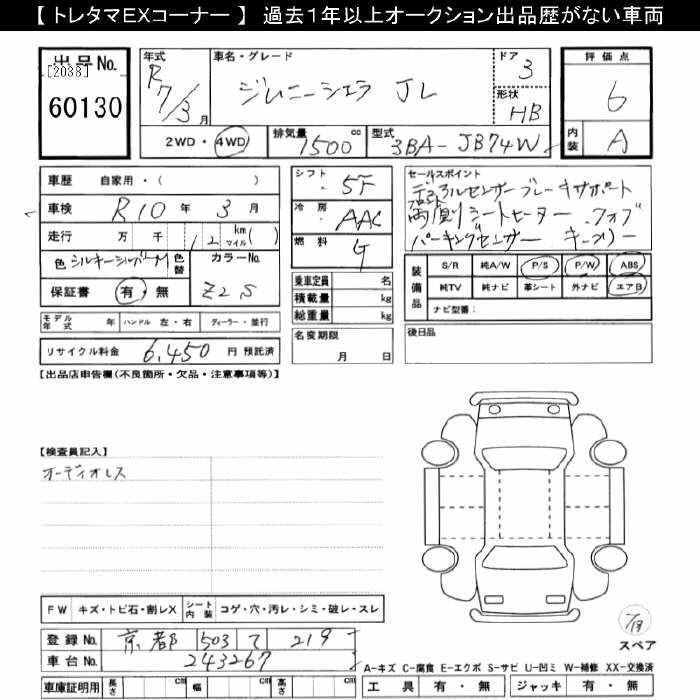 【 トレタマEXコーナー 】 過去１年以上オークション出品歴がない車両
出品No.
[2038]
60130
年式
R 7/3 月
車名・グレード
ジムニーシエラ JL
ドア
3
形状
HB
評価点
6
内装
A
2WD・4WD
排気量
1500 cc
型式
3BA- JB74W
車歴 自家用・( )
車検 R10 年 3 月
走行 万 千 12 km マイル ( )
色 シルキーシルバーM
色替
カラーNo.
Z2S
保証書 有・無
シフト
5F
冷房
AAC
燃料
G
乗車定員 名
積載量 kg
総重量 kg
セールスポイント
デュアルセンサーブレーキサポート
フロント
両側シートヒーター.フォブ
パーキングセンサー キーフリー
装備品
S/R 純A/W P/S P/W ABS
純TV 純ナビ 革シート 外ナビ エアB
ナビ型番：
モデル年式 年 ハンドル 左・右 ディーラー・並行
リサイクル料金 6,450 円 預託済
名変期限
月 日
後日品
【出品店申告欄(不良箇所・欠品・注意事項等)】
【検査員記入】
オーディオレス
FW キズ・トビ石・割レX
シート内装 コゲ・穴・汚レ・シミ・破レ・スレ
登録No. 京都 503 て 219
車台No. 243267
車庫証明用 長さ cm 幅 cm 高さ cm
スペア
A-キズ C-腐食 E-エクボ S-サビ U-凹ミ W-補修 XX-交換済
工具 有・無 ジャッキ 有・無